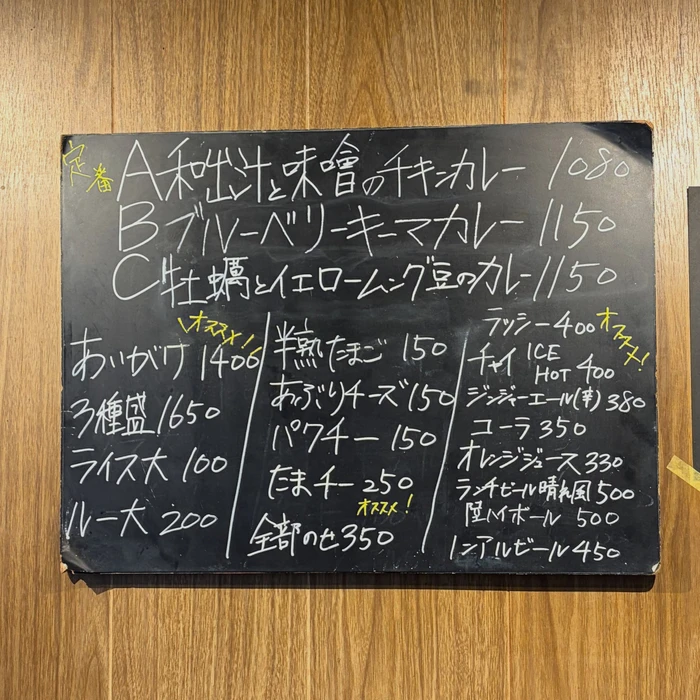 定番 A 和出汁と味噌のチキンカレー 1080
B ブルーベリーキーマカレー 1150
C 牡蠣とイエロームング豆のカレー 1150
オススメ!
あいがけ 1400
3種盛 1650
ライス大 100
ルー大 200
半熟たまご 150
あぶりチーズ 150
パクチー 150
たまチー 250
オススメ!
全部のせ 350
ラッシー 400
オススメ!
チャイ ICE HOT 400
ジンジャーエール(辛) 380
コーラ 350
オレンジジュース 330
ランチビール晴れ風 500
陸ハイボール 500
ノンアルビール 450